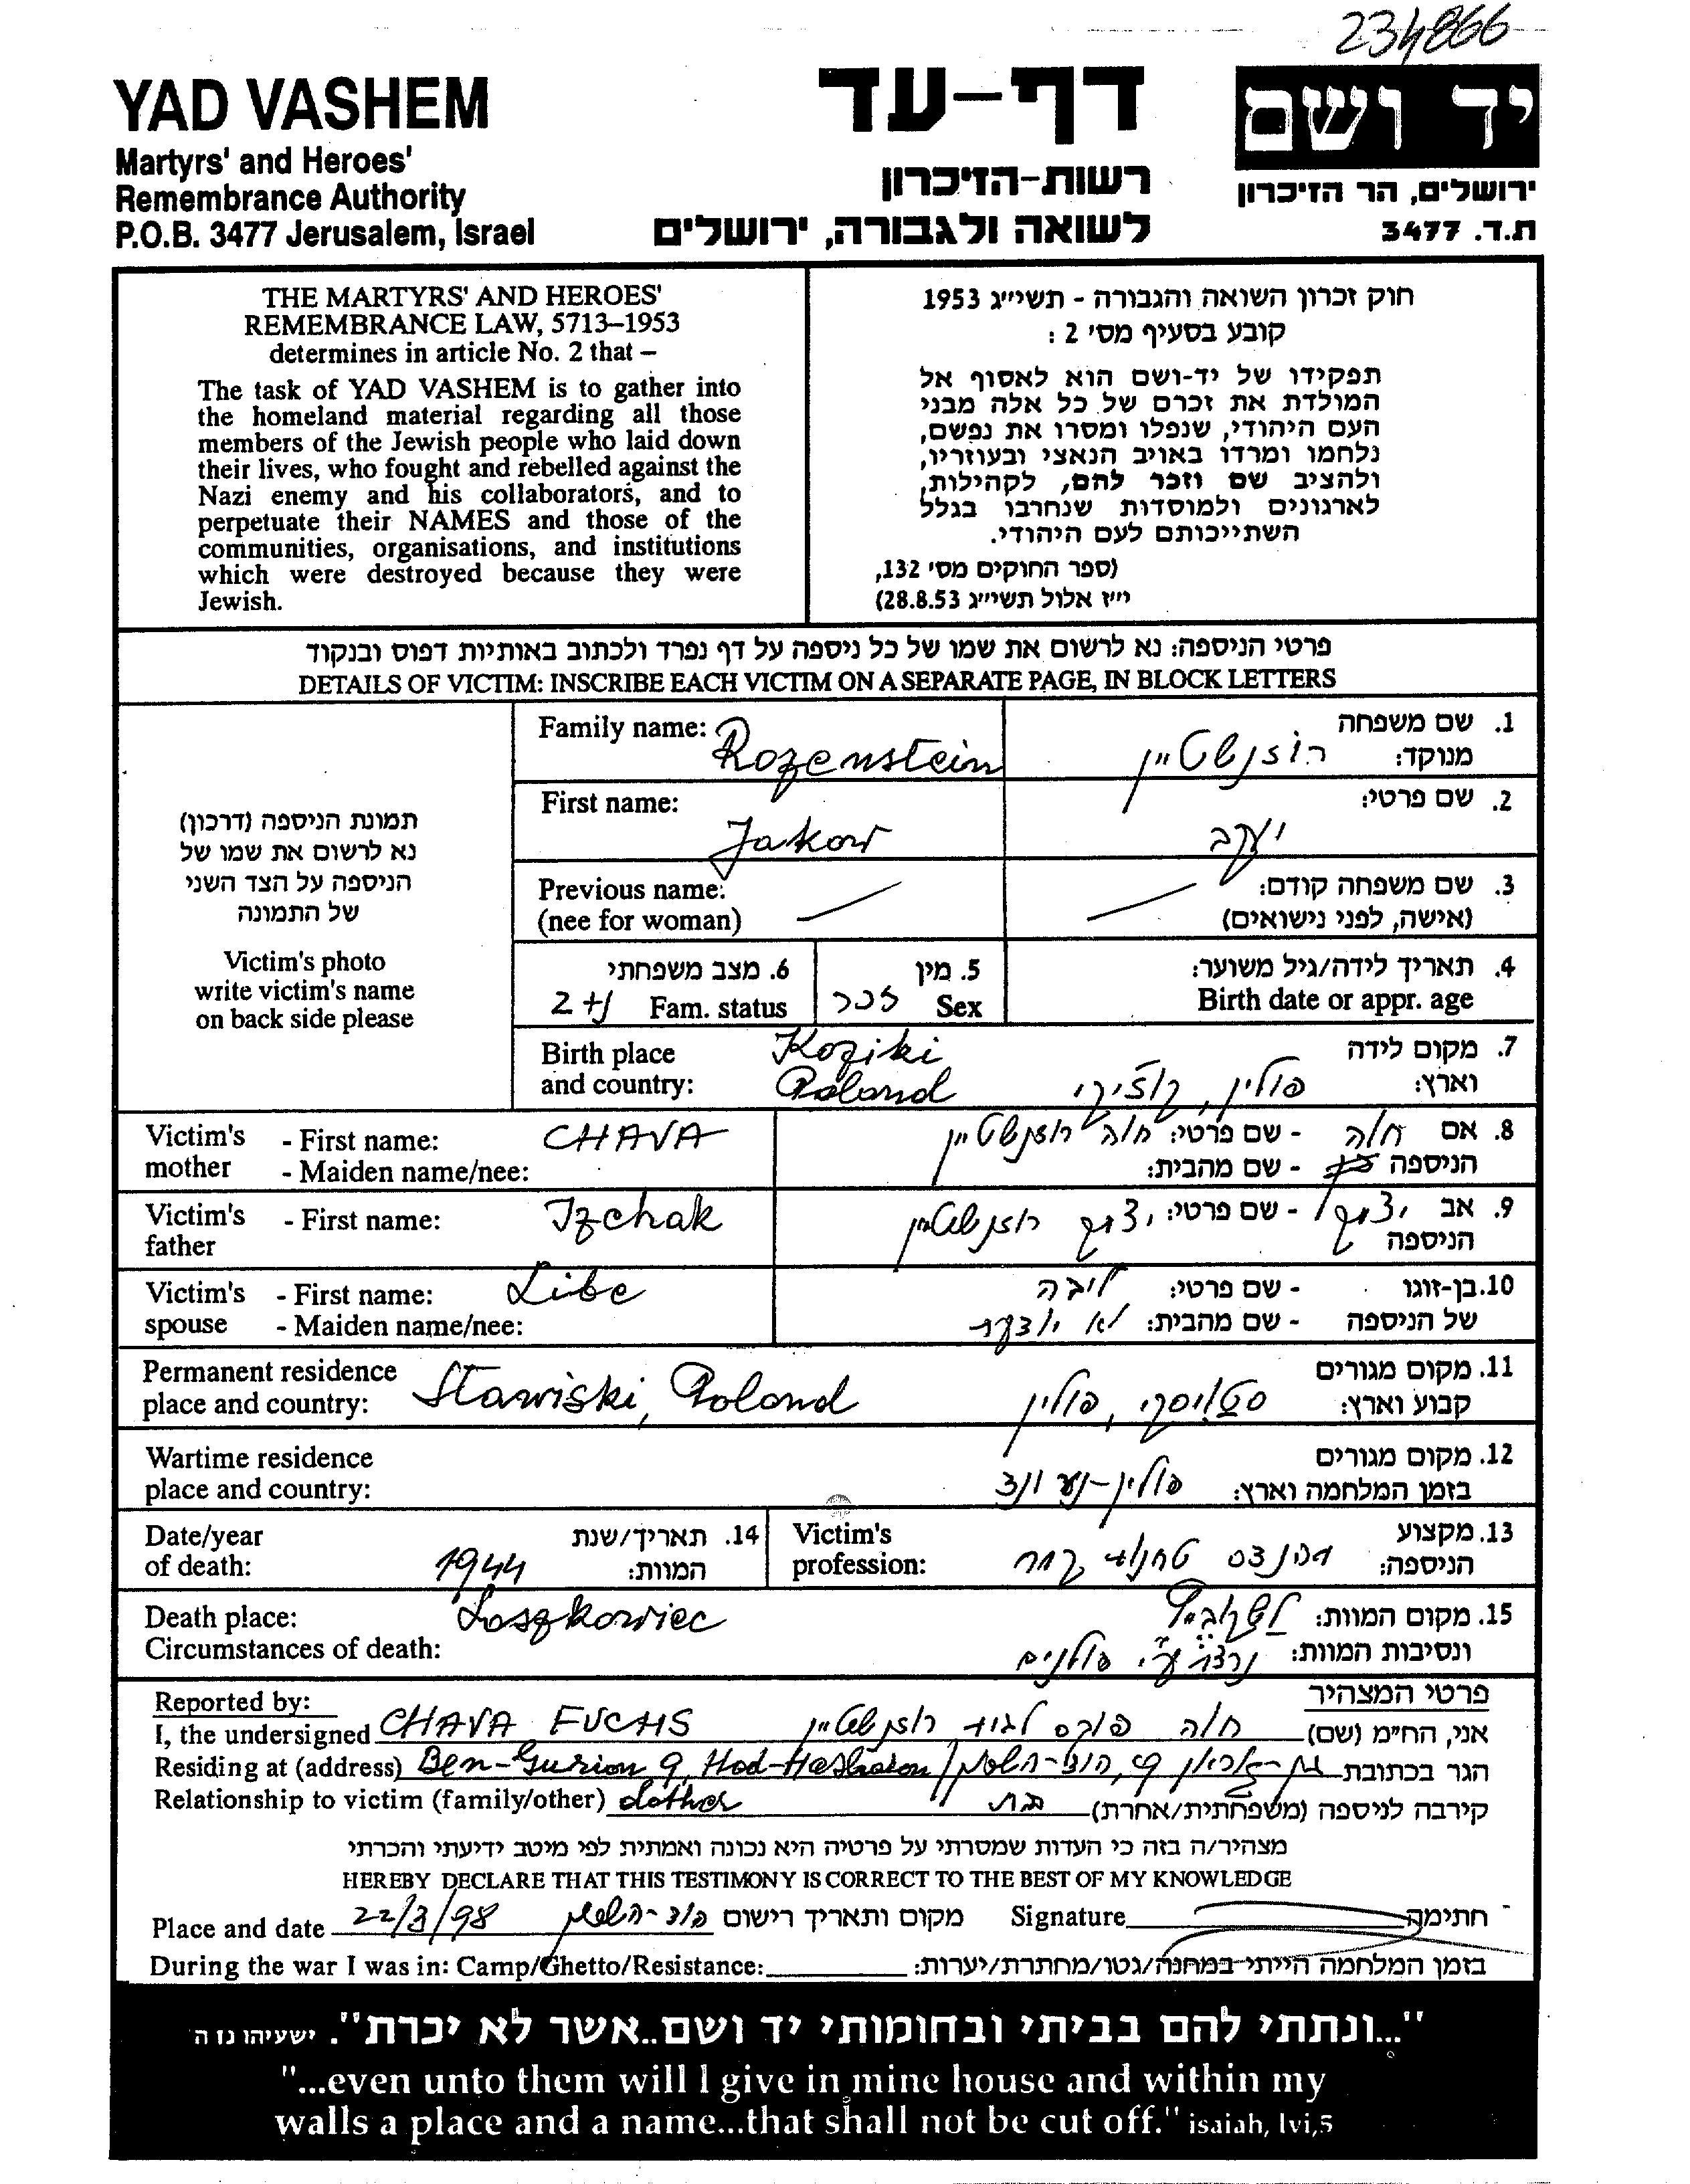 234866
YAD VASHEM
Martyrs' and Heroes'
Remembrance Authority
P.O.B. 3477 Jerusalem, Israel
דף-עד
רשות-הזיכרון
לשואה ולגבורה, ירושלים
יד ושם
ירושלים, הר הזיכרון
ת.ד. 3477
THE MARTYRS' AND HEROES'
REMEMBRANCE LAW, 5713–1953
determines in article No. 2 that –
The task of YAD VASHEM is to gather into
the homeland material regarding all those
members of the Jewish people who laid down
their lives, who fought and rebelled against the
Nazi enemy and his collaborators, and to
perpetuate their NAMES and those of the
communities, organisations, and institutions
which were destroyed because they were
Jewish.
חוק זכרון השואה והגבורה - תשי״ג 1953
קובע בסעיף מס׳ 2 :
תפקידו של יד-ושם הוא לאסוף אל
המולדת את זכרם של כל אלה מבני
העם היהודי, שנפלו ומסרו את נפשם,
נלחמו ומרדו באויב הנאצי ובעוזריו,
ולהציב שם וזכר להם, לקהילות,
לארגונים ולמוסדות שנחרבו בגלל
השתייכותם לעם היהודי.
(ספר החוקים מס׳ 132,
י״ז אלול תשי״ג 28.8.53)
פרטי הניספה: נא לרשום את שמו של כל ניספה על דף נפרד ולכתוב באותיות דפוס ובנקוד
DETAILS OF VICTIM: INSCRIBE EACH VICTIM ON A SEPARATE PAGE, IN BLOCK LETTERS
תמונת הניספה (דרכון)
נא לרשום את שמו של
הניספה על הצד השני
של התמונה
Victim's photo
write victim's name
on back side please
Family name: Rozenstein
1. שם משפחה
מנוקד: רוזנשטיין
First name: Jakow
2. שם פרטי: יעקב
Previous name:
(nee for woman)
3. שם משפחה קודם:
(אישה, לפני נישואים)
6. מצב משפחתי
2+נ Fam. status
5. מין
זכר Sex
4. תאריך לידה/גיל משוער:
Birth date or appr. age
Birth place Koziki
and country: Poland
7. מקום לידה
וארץ: פולין, קוז׳יקי
Victim's - First name: CHAVA
mother - Maiden name/nee:
8. אם חוה - שם פרטי: חוה רוזנשטיין
הניספה - שם מהבית:
Victim's - First name: Izchak
father
9. אב יצחק - שם פרטי: יצחק רוזנשטיין
הניספה
Victim's - First name: Libe
spouse - Maiden name/nee:
10. בן-זוגו - שם פרטי: ליבה
של הניספה - שם מהבית: לא יודעת
Permanent residence
place and country: Stawiski, Poland
11. מקום מגורים
קבוע וארץ: סטויסקי, פולין
Wartime residence
place and country:
12. מקום מגורים
בזמן המלחמה וארץ: פולין-נע ונד
Date/year
of death: 1944
14. תאריך/שנת
המוות:
Victim's
profession:
13. מקצוע
הניספה: טחנות קמח
Death place: Loszkowiec
Circumstances of death:
15. מקום המוות:
ונסיבות המוות: נרצח ע״י פולנים
Reported by:
I, the undersigned CHAVA FUCHS
פרטי המצהיר
אני, הח״מ (שם) חוה פוקס לבית רוזנשטיין
Residing at (address) Ben-Gurion 9, Hod-Hasharon
הגר בכתובת בן-גוריון 9, הוד-השרון
Relationship to victim (family/other) dother
קירבה לניספה (משפחתית/אחרת) בת
מצהיר/ה בזה כי העדות שמסרתי על פרטיה היא נכונה ואמתית לפי מיטב ידיעתי והכרתי
HEREBY DECLARE THAT THIS TESTIMONY IS CORRECT TO THE BEST OF MY KNOWLEDGE
Place and date 22/3/98 הוד-השרון מקום ותאריך רישום
Signature חתימה
During the war I was in: Camp/Ghetto/Resistance:
בזמן המלחמה הייתי במחנה/גטו/מחתרת/יערות:
"...ונתתי להם בביתי ובחומותי יד ושם..אשר לא יכרת". ישעיהו נו ה
"...even unto them will I give in mine house and within my
walls a place and a name...that shall not be cut off." isaiah, lvi,5